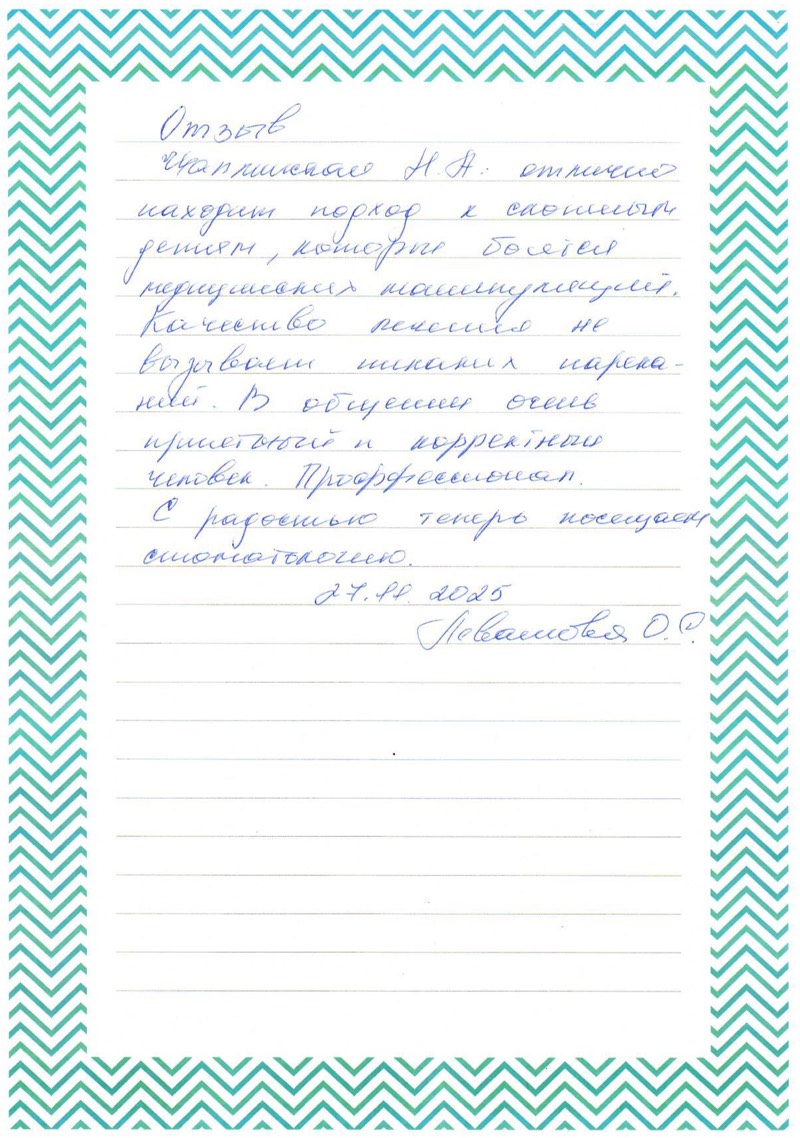 Отзыв
Чаплинская Н.А. отлично
находит подход к сложным
детям, которые боятся
медицинских манипуляций.
Качество лечения не
вызывает никаких нарека-
ний. В общении очень
приятный и корректный
человек. Профессионал.
С радостью теперь посещаем
стоматологию.
27.11.2025
Левашовва О.С.